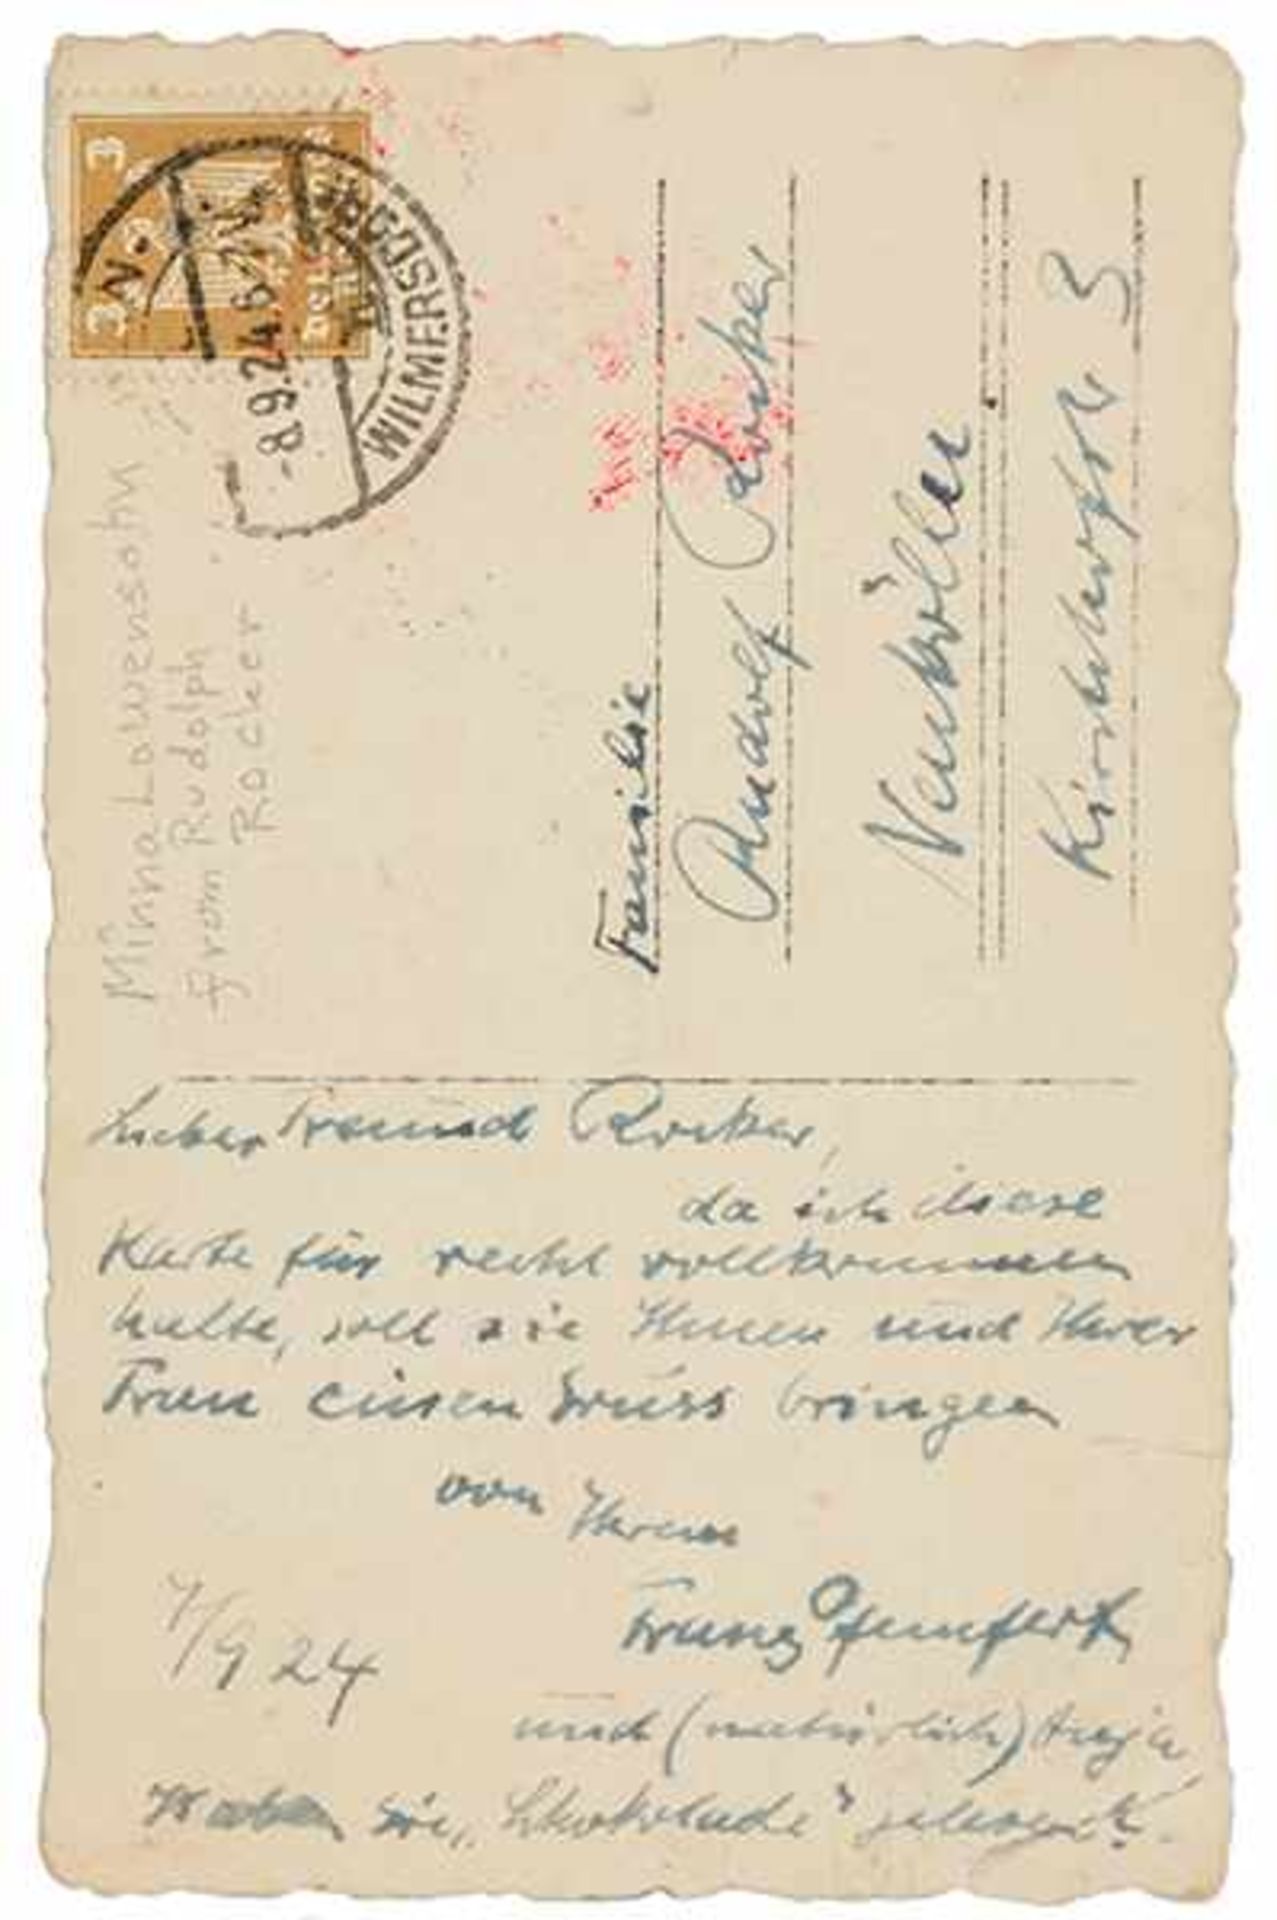 3
3
WILMERSDORF
-8.9.24.6-7N.
Minna Lowensohn
From Rudolph
Rocker
Familie
Rudolf Rocker
Neukölln
3
Lieber Freund Rocker,
da ich diese
Karte für recht vollkommen
halte, soll sie Ihnen und Ihrer
Frau einen Gruss bringen
von Ihrem
Franz Pfemfert
7/9 24
und (natürlich)
Haben Sie „Schokolade“